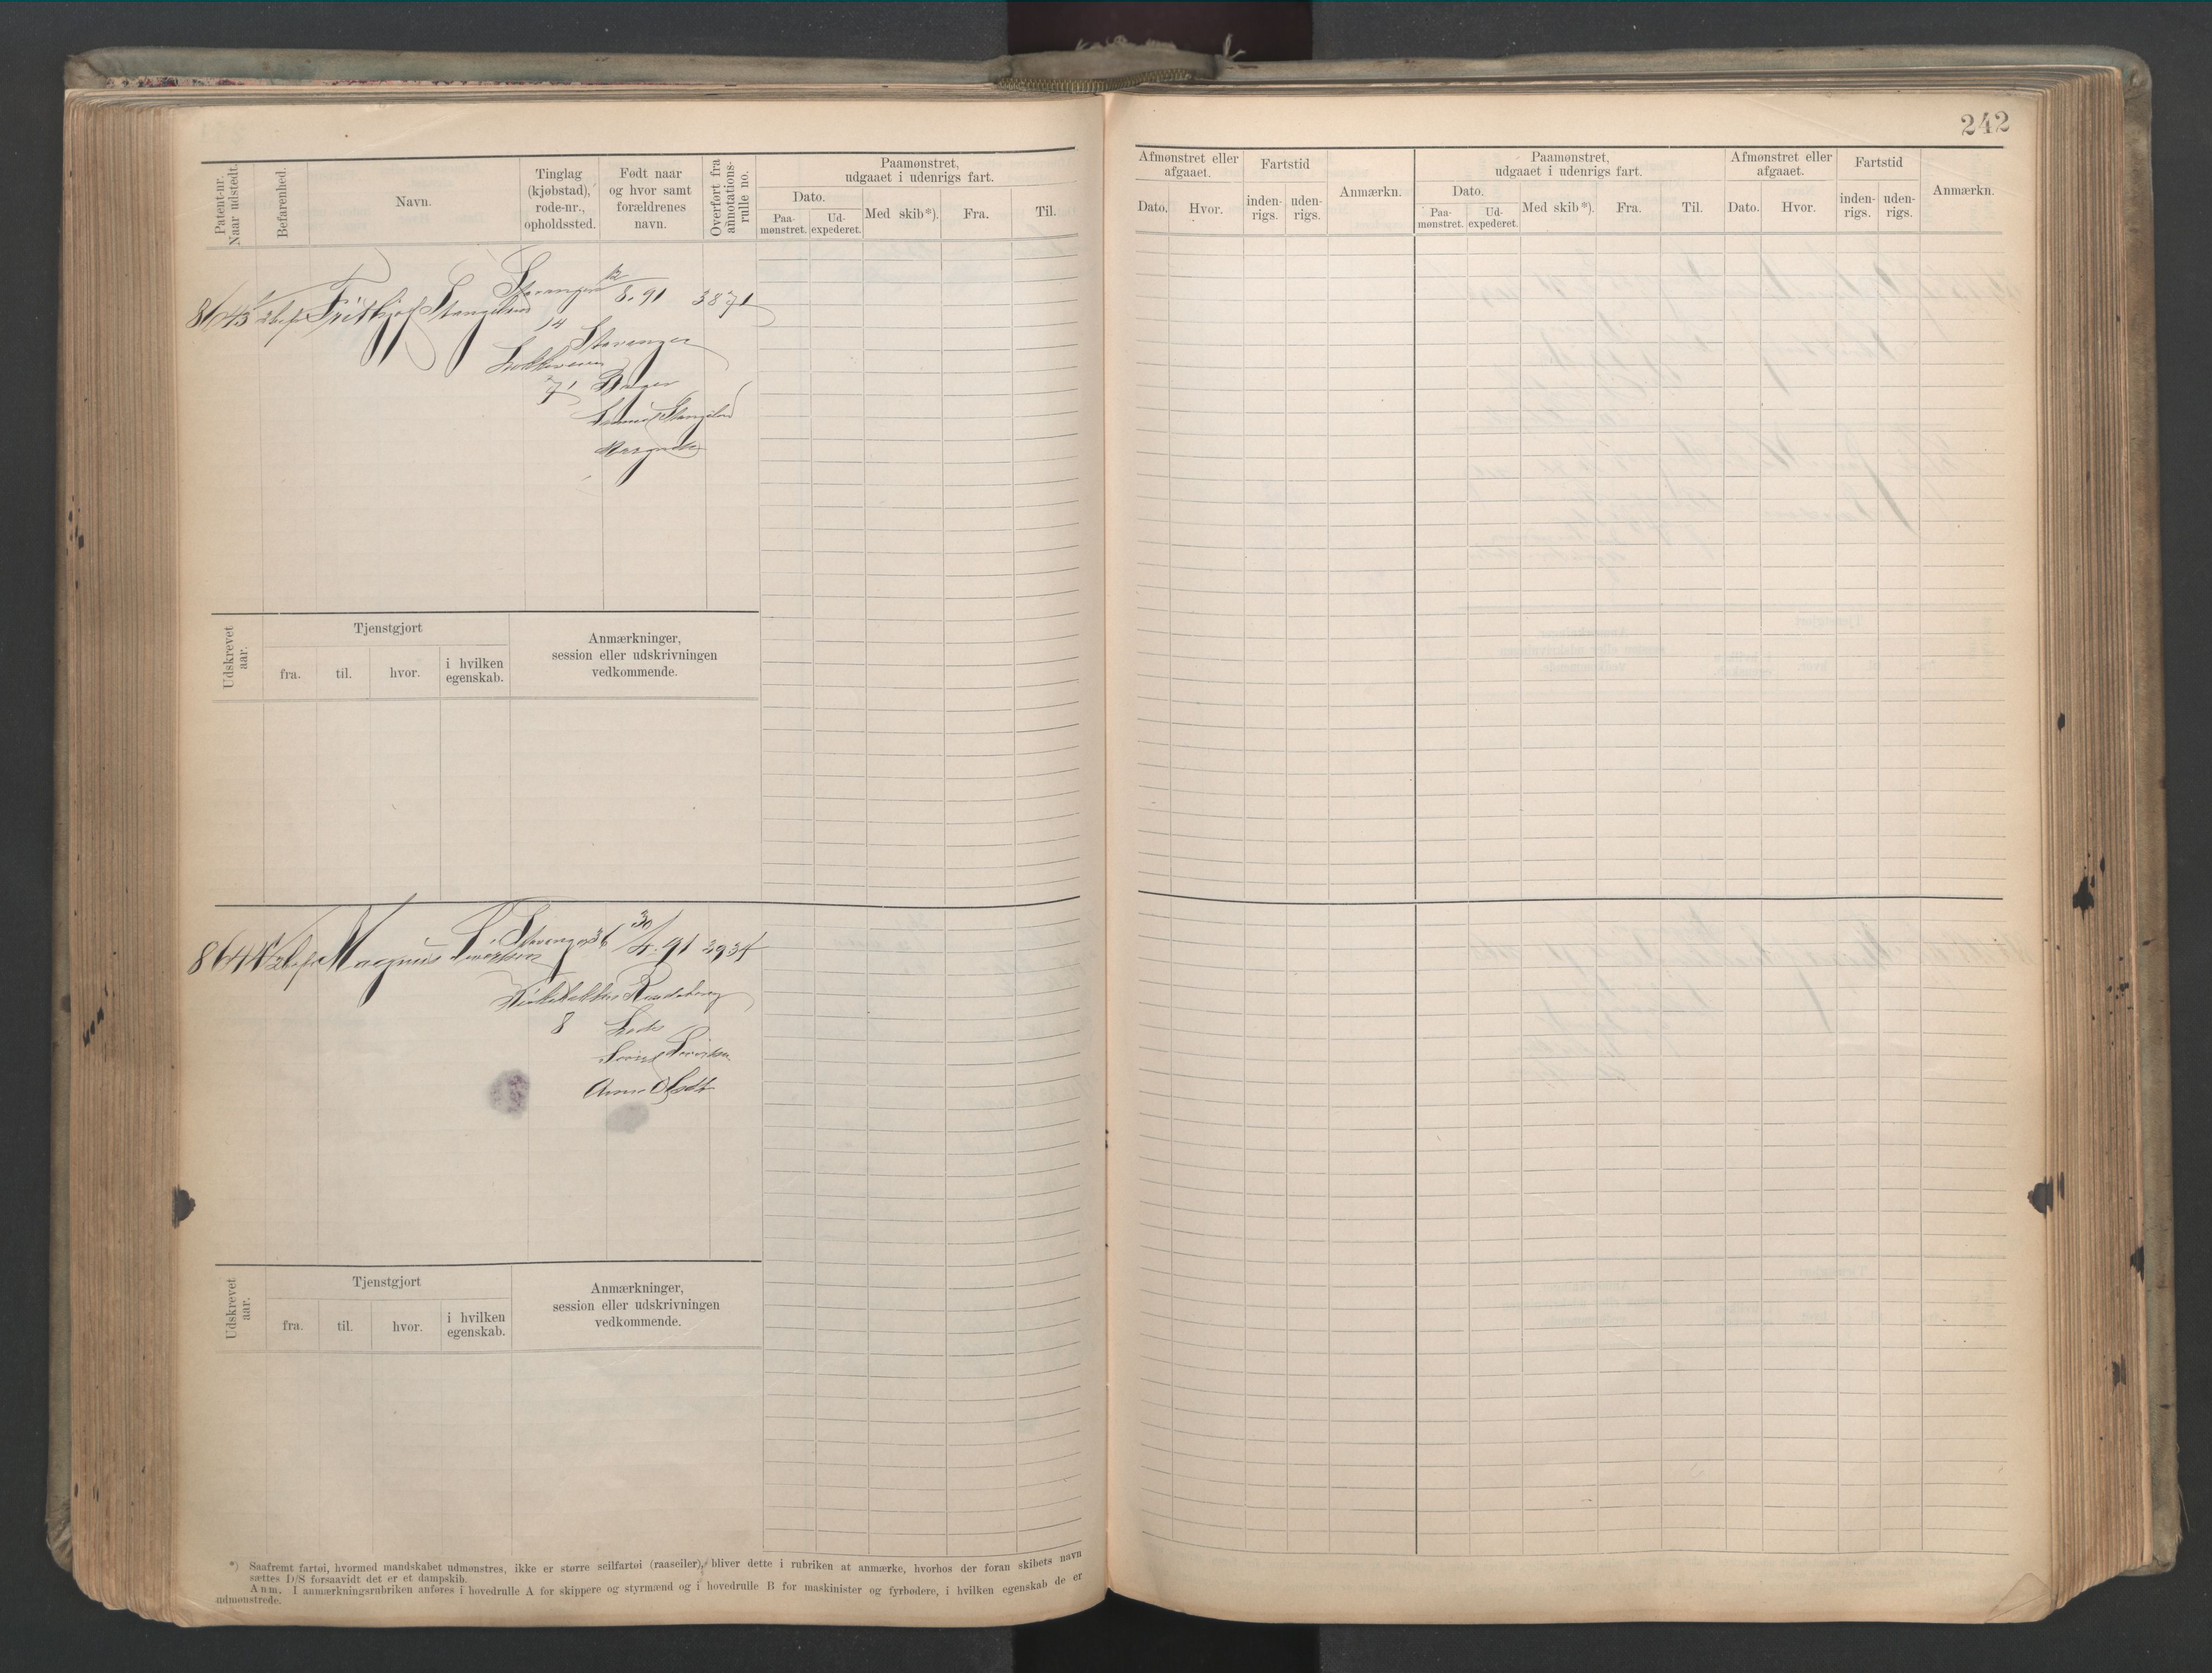 242
Patent-nr.
Naar udstedt.
Befarenhed.
Navn.
Tinglag
(kjøbstad),
rode-nr.,
opholdssted.
Født naar
og hvor samt
forældrenes
navn.
Overført fra
annotations-
rulle no.
Paamønstret,
udgaaet i udenrigs fart.
Dato.
Paa-
mønstret.
Ud-
expederet.
Med skib*).
Fra.
Til.
Afmønstret eller
afgaaet.
Dato.
Hvor.
Fartstid
inden-
rigs.
uden-
rigs.
Anmærkn.
Paamønstret,
udgaaet i udenrigs fart.
Dato.
Paa-
mønstret.
Ud-
expederet.
Med skib*).
Fra.
Til.
Afmønstret eller
afgaaet.
Dato.
Hvor.
Fartstid
inden-
rigs.
uden-
rigs.
Anmærkn.
8643 Frithjof Stangeland Stavanger 12/8.91 3871
14 Stavanger
71
Stangeland
Udskrevet
aar.
Tjenstgjort
fra.
til.
hvor.
i hvilken
egenskab.
Anmærkninger,
session eller udskrivningen
vedkommende.
8644 Magnus Stavanger 36 30/4.91 3934
8
Anna Olsdtr
Udskrevet
aar.
Tjenstgjort
fra.
til.
hvor.
i hvilken
egenskab.
Anmærkninger,
session eller udskrivningen
vedkommende.
*) Saafremt fartøi, hvormed mandskabet udmønstres, ikke er større seilfartøi (raaseiler), bliver dette i rubriken at anmærke, hvorhos der foran skibets navn
sættes D/S forsaavidt det er et dampskib.
Anm. I anmærkningsrubriken anføres i hovedrulle A for skippere og styrmænd og i hovedrulle B for maskinister og fyrbødere, i hvilken egenskab de er
udmønstrede.